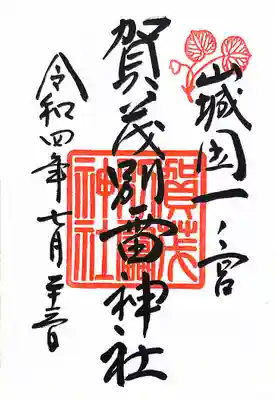 山城国一ノ宮
賀茂別雷神社
令和四年七月二十三日
賀茂別雷神社